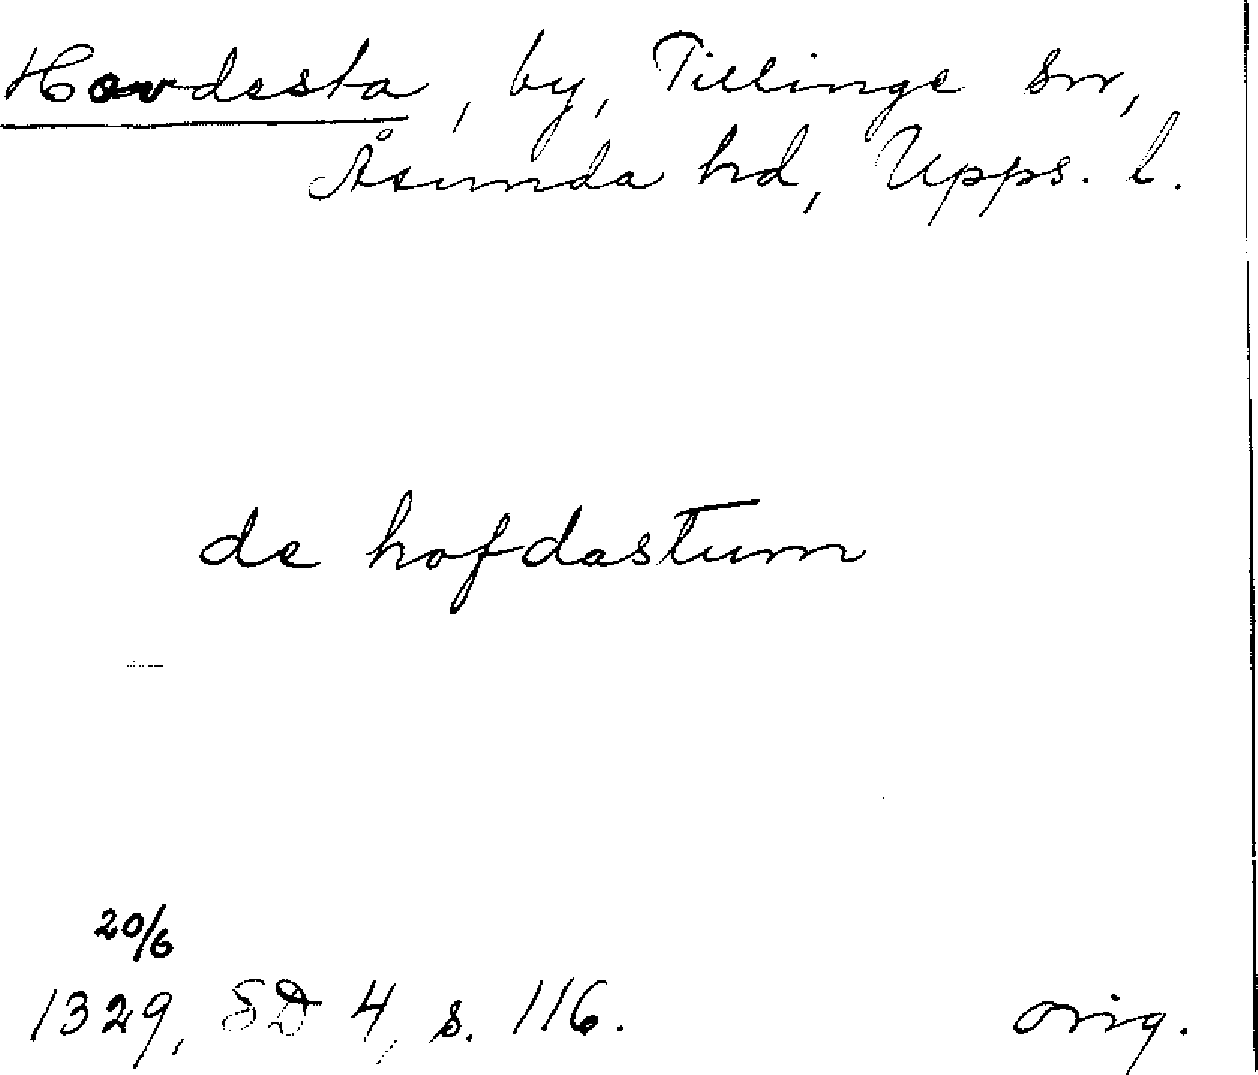 Hovdesta, by, Tillinge sn,
Åsunda hd, Upps. l.
de hofdastum
20/6
1329, SD 4, s. 116. orig.